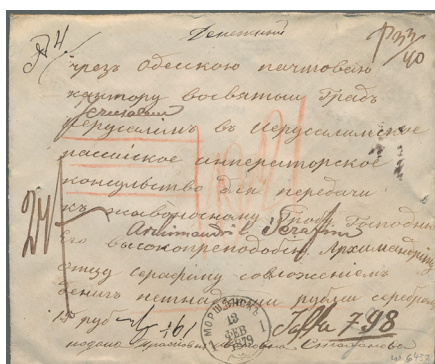 Денежный
№ 4.
р 33/40
чрезъ Одескою почтовою
кантору восвятый Градъ
Jerusalem
Иерусалимъ въ Иерусалимское
рассийское императорское
консульство для передачи
къ живоносному Гробу Господню
Archimandrit Serafim
Его высокопреподобію Архамандриту
отцу серафиму совложеніемъ
денигъ петнадцати рубли серебром
24
15 руб 761 Jaffa 798
МОРШАНСКЪ 1
13
ФЕВ
1879
подано